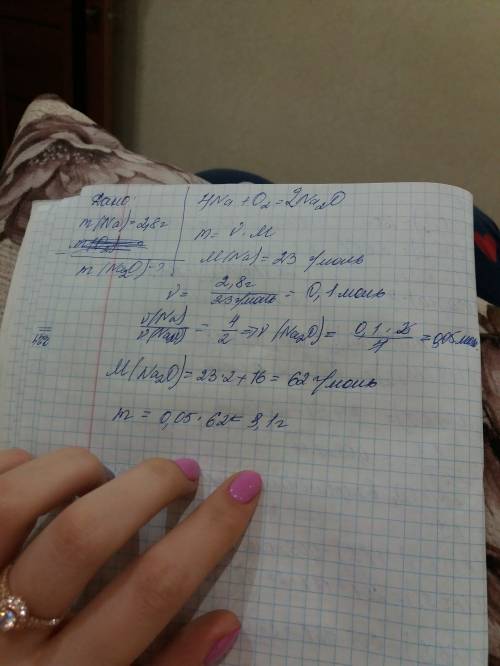 Дано:
m(Na)=2,8г
m(Na₂O)-?
4Na + O₂ = 2Na₂O
m = ν · M
M(Na) = 23 г/моль
ν = 2,8г / 23г/моль = 0,1 моль
ν(Na) / ν(Na₂O) = 4/2 => ν(Na₂O) = 0,1 · 2 / 4 = 0,05 моль
M(Na₂O) = 23·2+16 = 62 г/моль
m = 0,05 · 62 = 3,1г